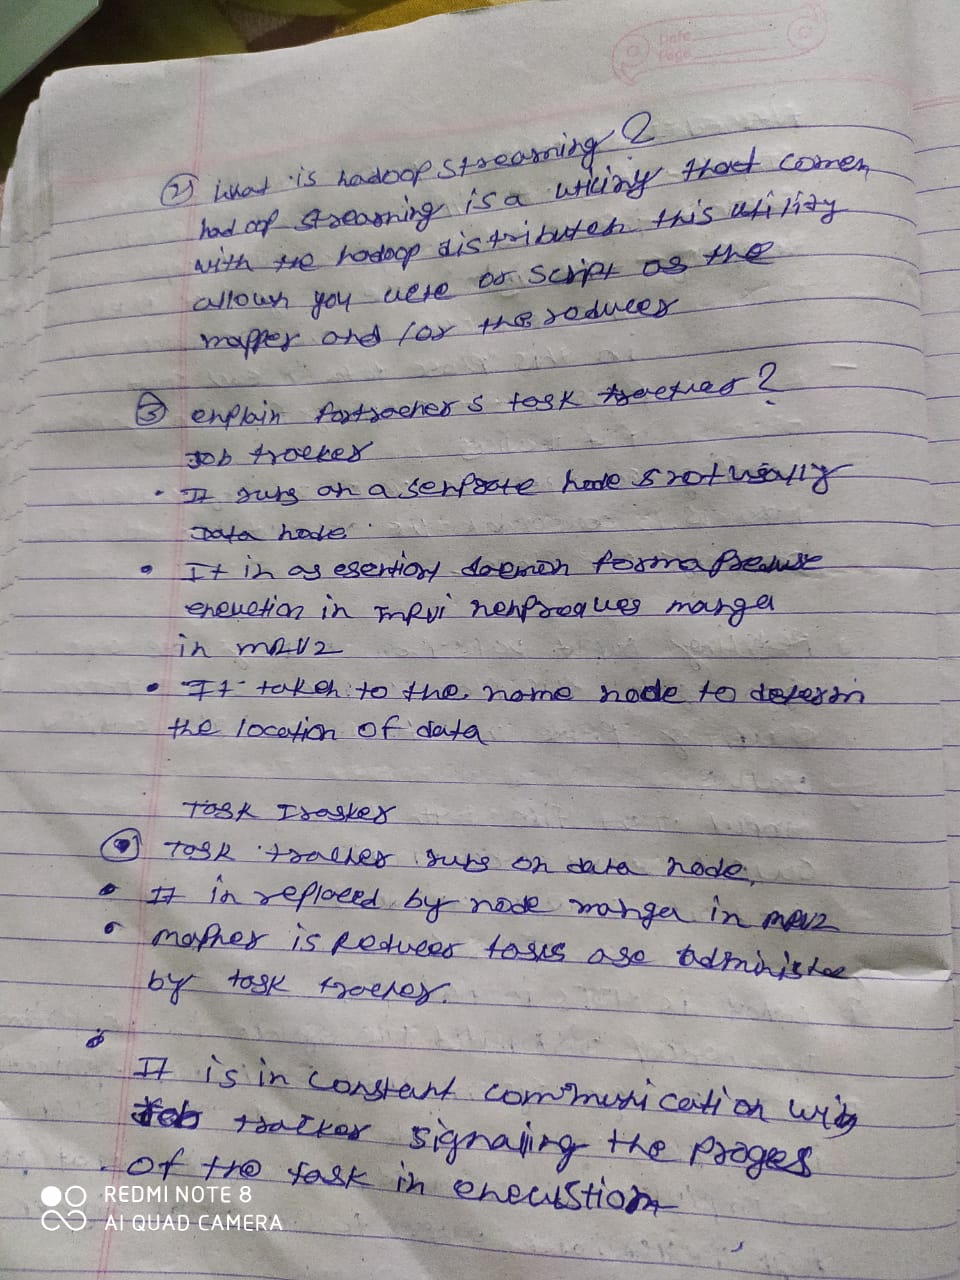 Date
Page
2) what is hadoop streaming ?
hadoop streaming is a utiliny that comes
with the hadoop distributeh this utility
allows you uese or script as the
mapper and / or the roducer
3) enplain task tracker ?
Job tracker
• It runs on a node & not usually
Data node.
• It in as daemon
in MRV1 manga
in MRV2
• It taken to the name node to determ
the location of data
Task Trasker
• Task tracker runs on data node,
• It in replaced by node manga in MRV2
• mapher is Reducer tasks are administee
by task tracker.
•
It is in constant communication with
Job tracker signaling the proges
of the task in
REDMI NOTE 8
AI QUAD CAMERA